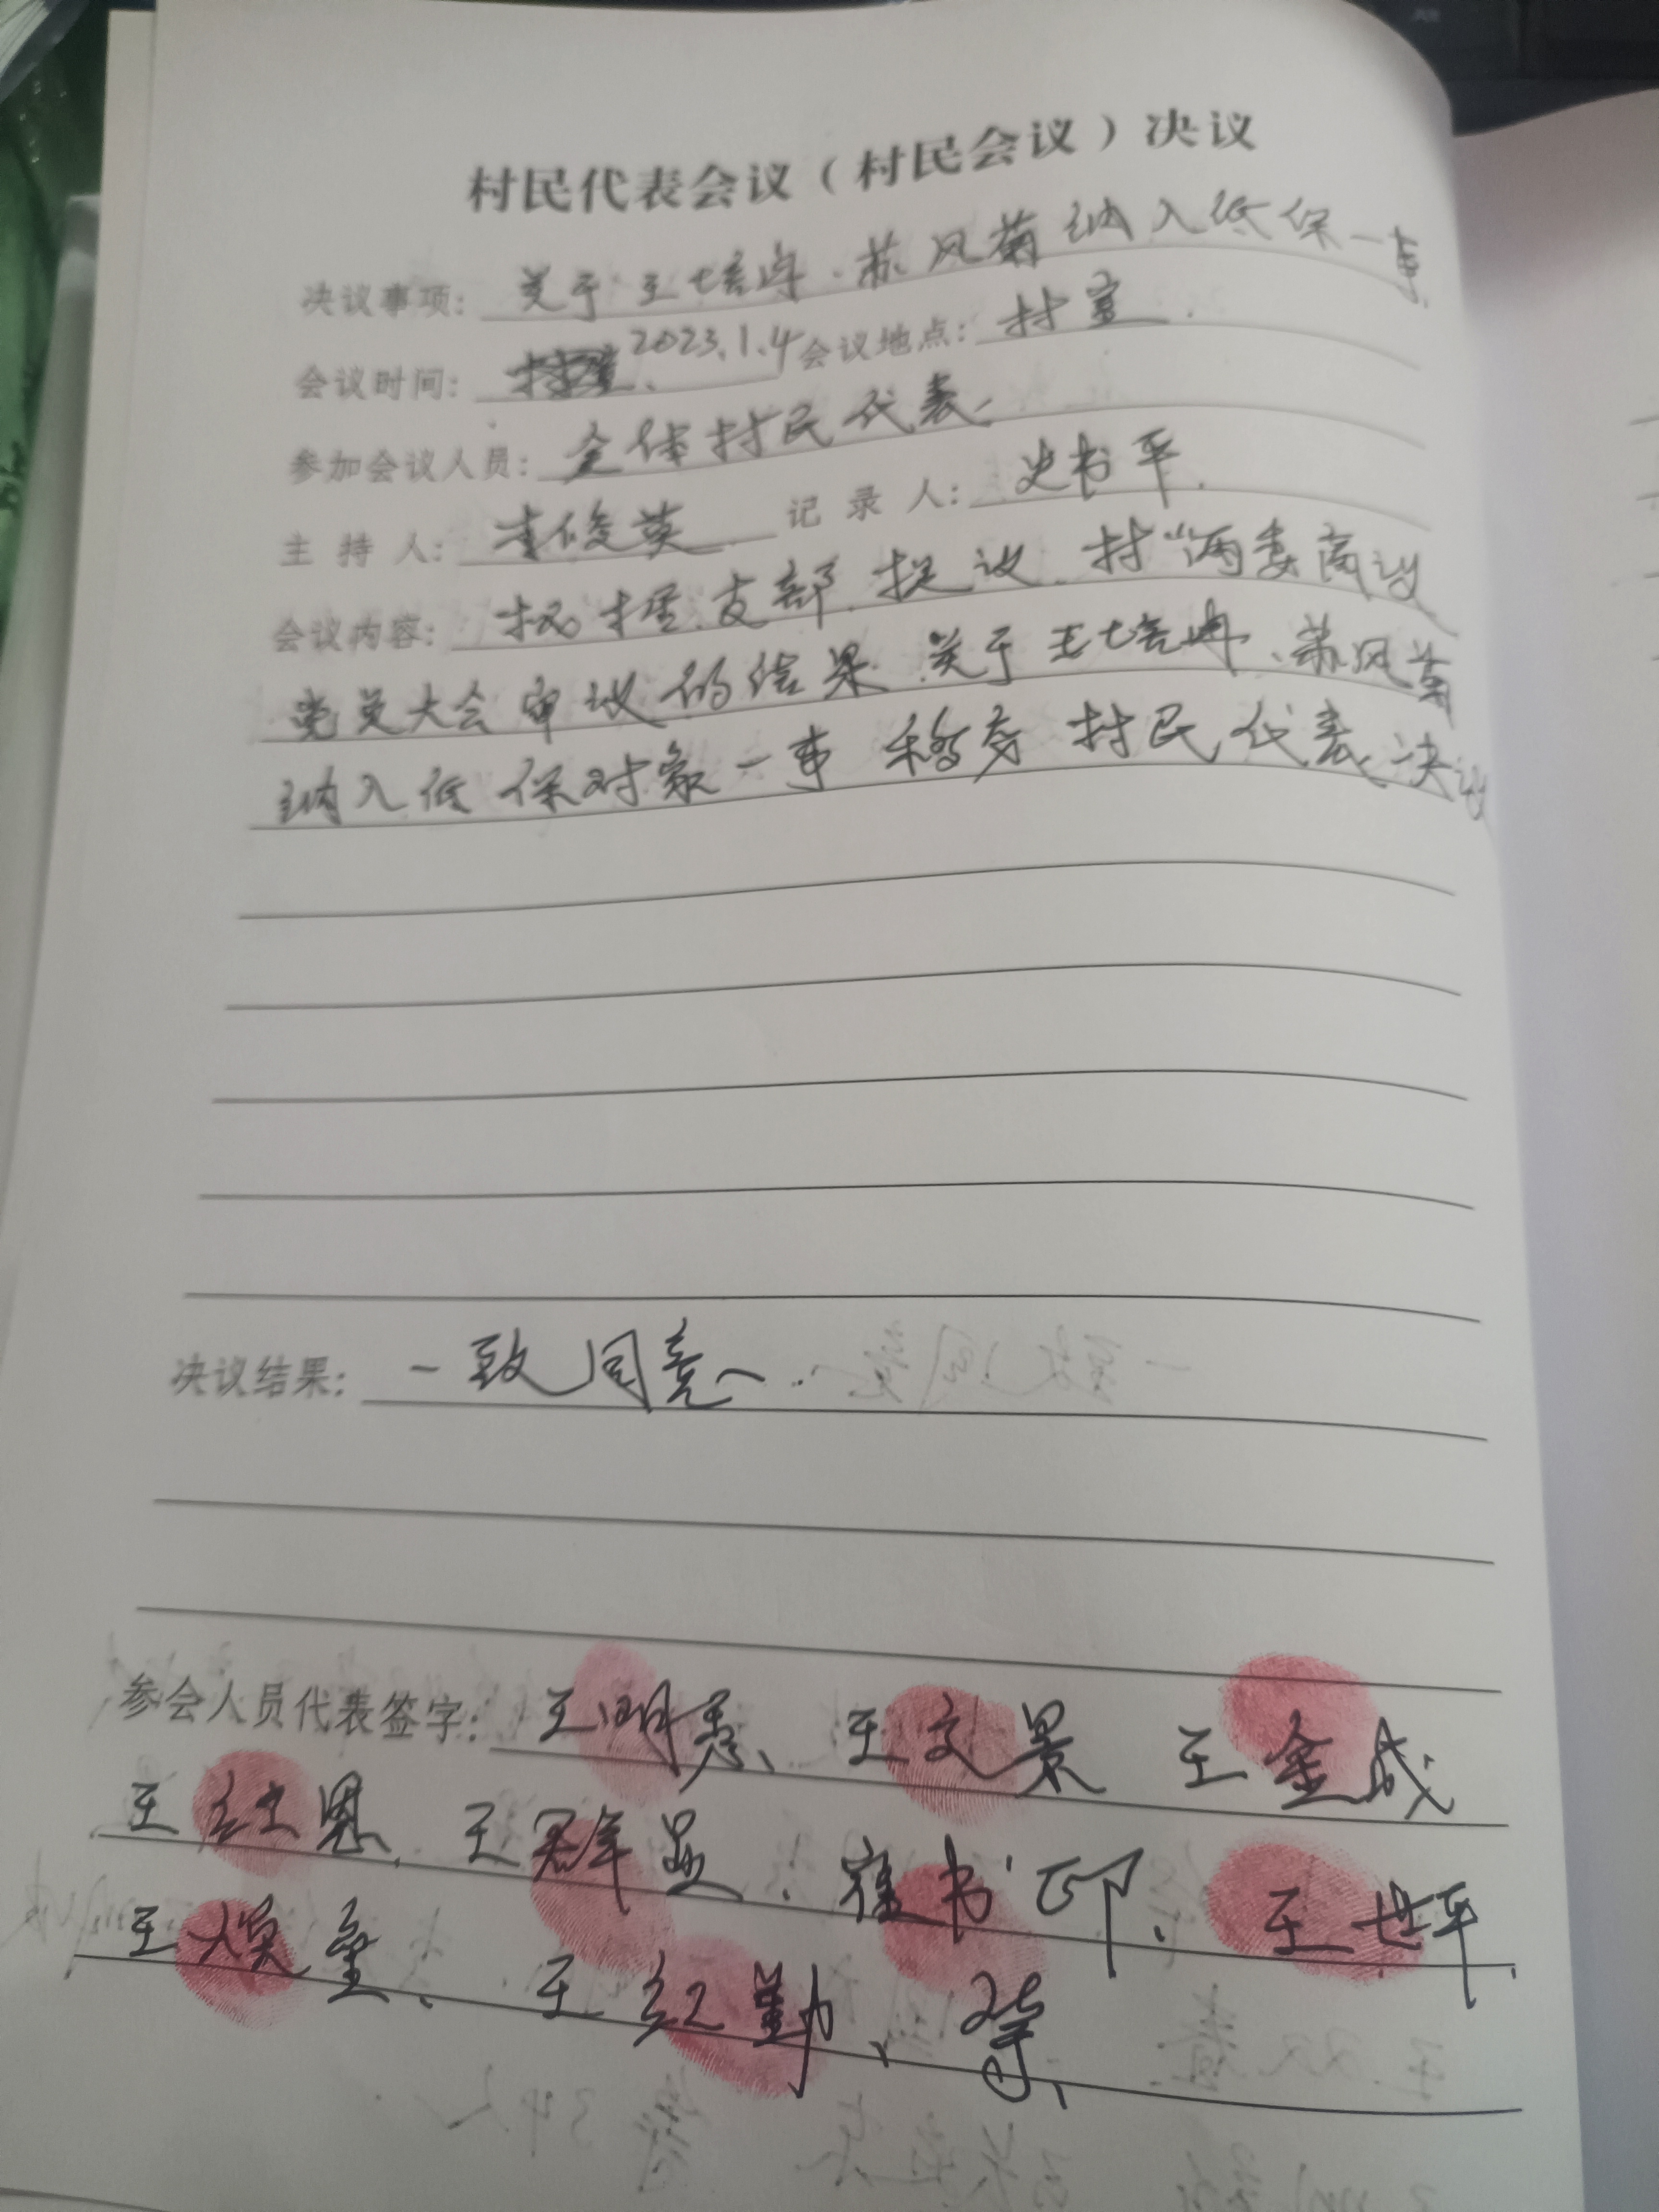 村民代表会议（村民会议）决议
决议事项： 关于王培冉、苏风菊纳入低保一事
会议时间： 2023.1.4 会议地点： 村室
参加会议人员： 全体村民代表
主 持 人： 李俊英 记 录 人： 史书平
会议内容： 根据支部提议 村“两委商议
党员大会审议的结果 关于王培冉、苏风菊
纳入低保对象一事 移交村民代表决议
决议结果： 一致同意
参会人员代表签字： 王明 王文景 王金成
王红恩、王群显、崔书印、王世平
王焕金、王红勤、等